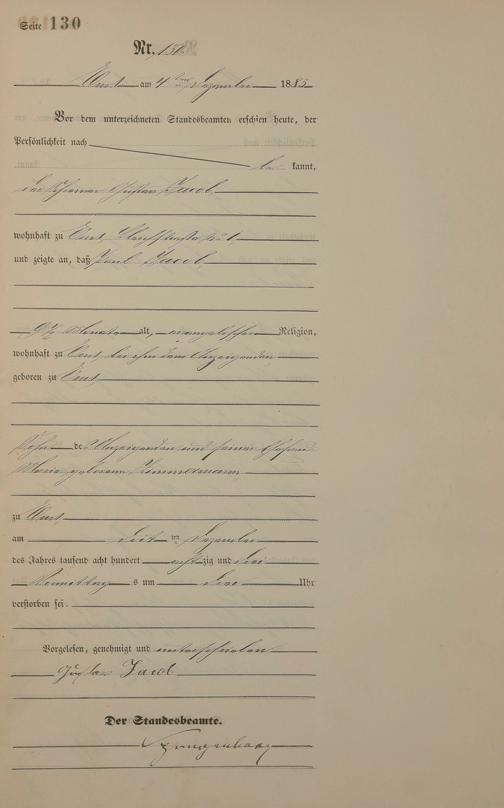 Seite 130
Nr. 150.
Ems am 4 ten Dezember 1885
Vor dem unterzeichneten Standesbeamten erschien heute, der
Persönlichkeit nach
be kannt,
der Gustav Jacob
wohnhaft zu Ems,
und zeigte an, daß Paul Jacob
9 1/2 Monate alt, evangelischer Religion,
wohnhaft zu Ems, bei ihm dem Anzeigenden
geboren zu Ems,
Sohn des Anzeigenden und seiner Ehefrau
Maria geborenen Zimmermann
zu Ems
am ten Dezember
des Jahres tausend acht hundert acht zig und
Vormittags um Uhr
verstorben sei.
Vorgelesen, genehmigt und unterschrieben
Gustav Jacob
Der Standesbeamte.